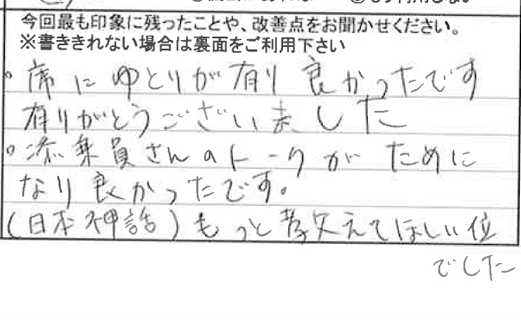 今回最も印象に残ったことや、改善点をお聞かせください。
※書ききれない場合は裏面をご利用下さい
。席にゆとりが有り良かったです
有りがとうございました
。添乗員さんのトークがために
なり良かったです。
(日本神話)もっと教えてほしい位
でした